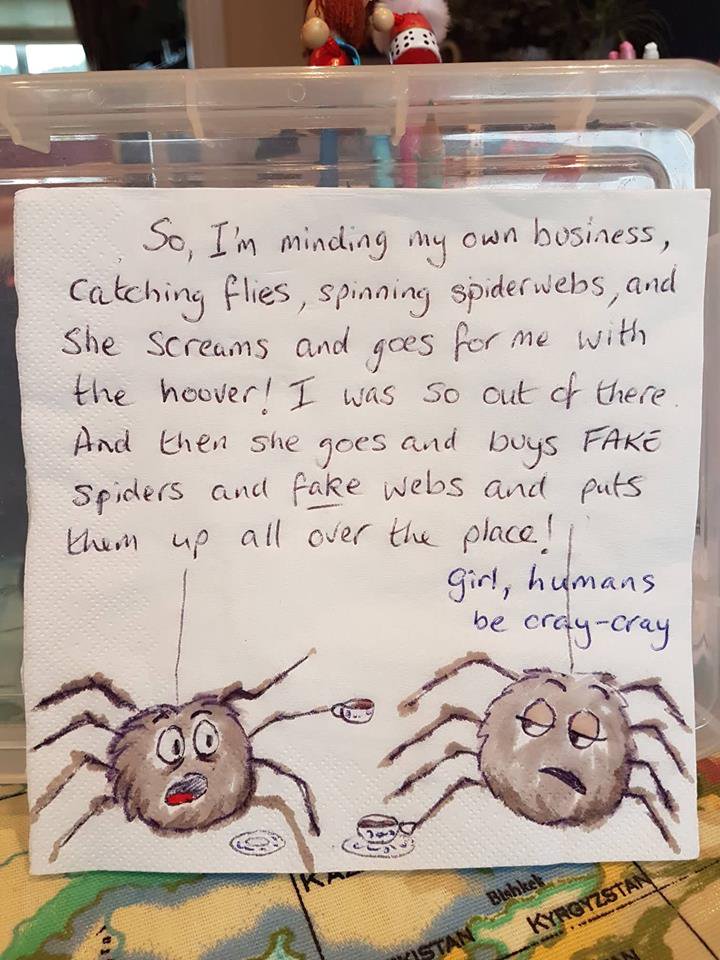 So, I'm minding my own business,
catching flies, spinning spiderwebs, and
she screams and goes for me with
the hoover! I was so out of there.
And then she goes and buys FAKE
spiders and fake webs and puts
them up all over the place!
girl, humans
be cray-cray
Bishkek
KYRGYZSTAN